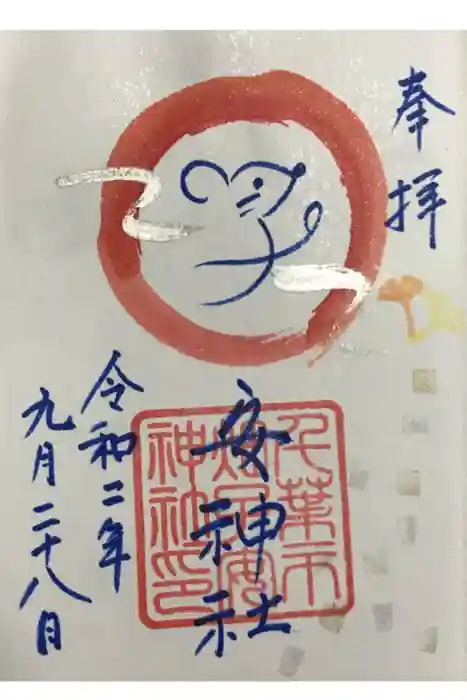 奉拝
安神社
令和二年
九月二十八日
千葉市
畑子安
神社印